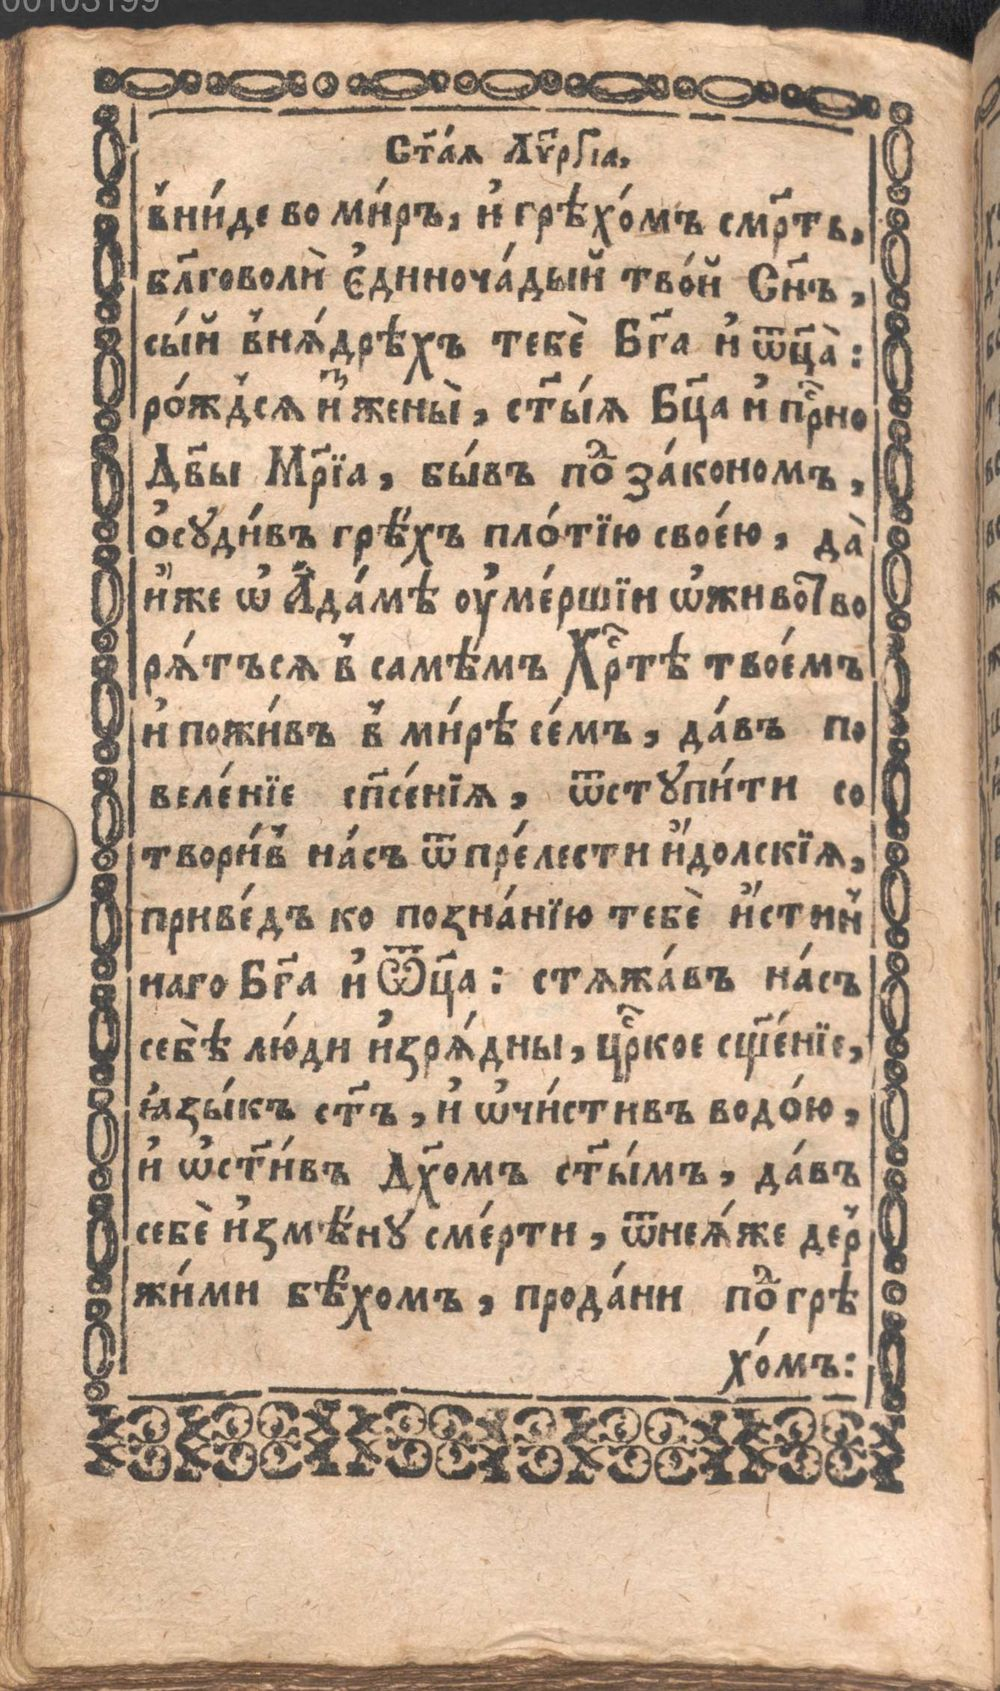 00103199
Ст҃а́ѧ Лѵⷮргїа,
в̾ни́де во ми́ръ, и҆ грѣхо́мъ смр҃ть,
бл҃говолѝ є҆диноча́дый тво́й Сн҃ъ,
сы́й в̾нѧ́дрѣхъ тебѐ Бг҃а и҆ ѿц҃а̀:
ро́жд̾сѧ и҆ⷥ жены̀, ст҃ы́ѧ Бц҃а и҆ прⷭ҇но
Дв҃ы Мр҃їа, бы́въ поⷣ за́кономъ,
ѡ҆сꙋди́въ грѣ́хъ пло́тїю свое́ю, да̀
и҆̀же ѡ҆ А҆да́мѣ оу҆ме́ршїи ѡ҆живоⷮво
рѧ́тъсѧ в̾ самѣ́мъ Хрⷭ҇тѣ твое́мъ
и҆ пожи́въ в̾ ми́рѣ се́мъ, да́въ по
веле́нїе сп҃се́нїѧ, ѿстꙋпи́ти со
твори́в̾ на́съ ѿ пре́лести и҆́долскїѧ,
приве́дъ ко позна́нїю тебѐ и҆́стин̾
наго Бг҃а и҆ Ѿц҃а: стѧжа́въ на́съ
себѣ̀ лю́ди и҆зрѧ́дны, црⷭ҇кое сщ҃е́нїе,
ꙗ҆зы́къ ст҃ъ, и҆ ѡ҆чи́стивъ водо́ю,
и҆ ѡ҆ст҃и́въ Дх҃омъ ст҃ы́мъ, да́въ
себѐ и҆змѣ́нꙋ сме́рти, ѿнеѧ́же дер̾
жи́ми бѣ́хомъ, прода́ни поⷣ грѣ
хо́мъ: